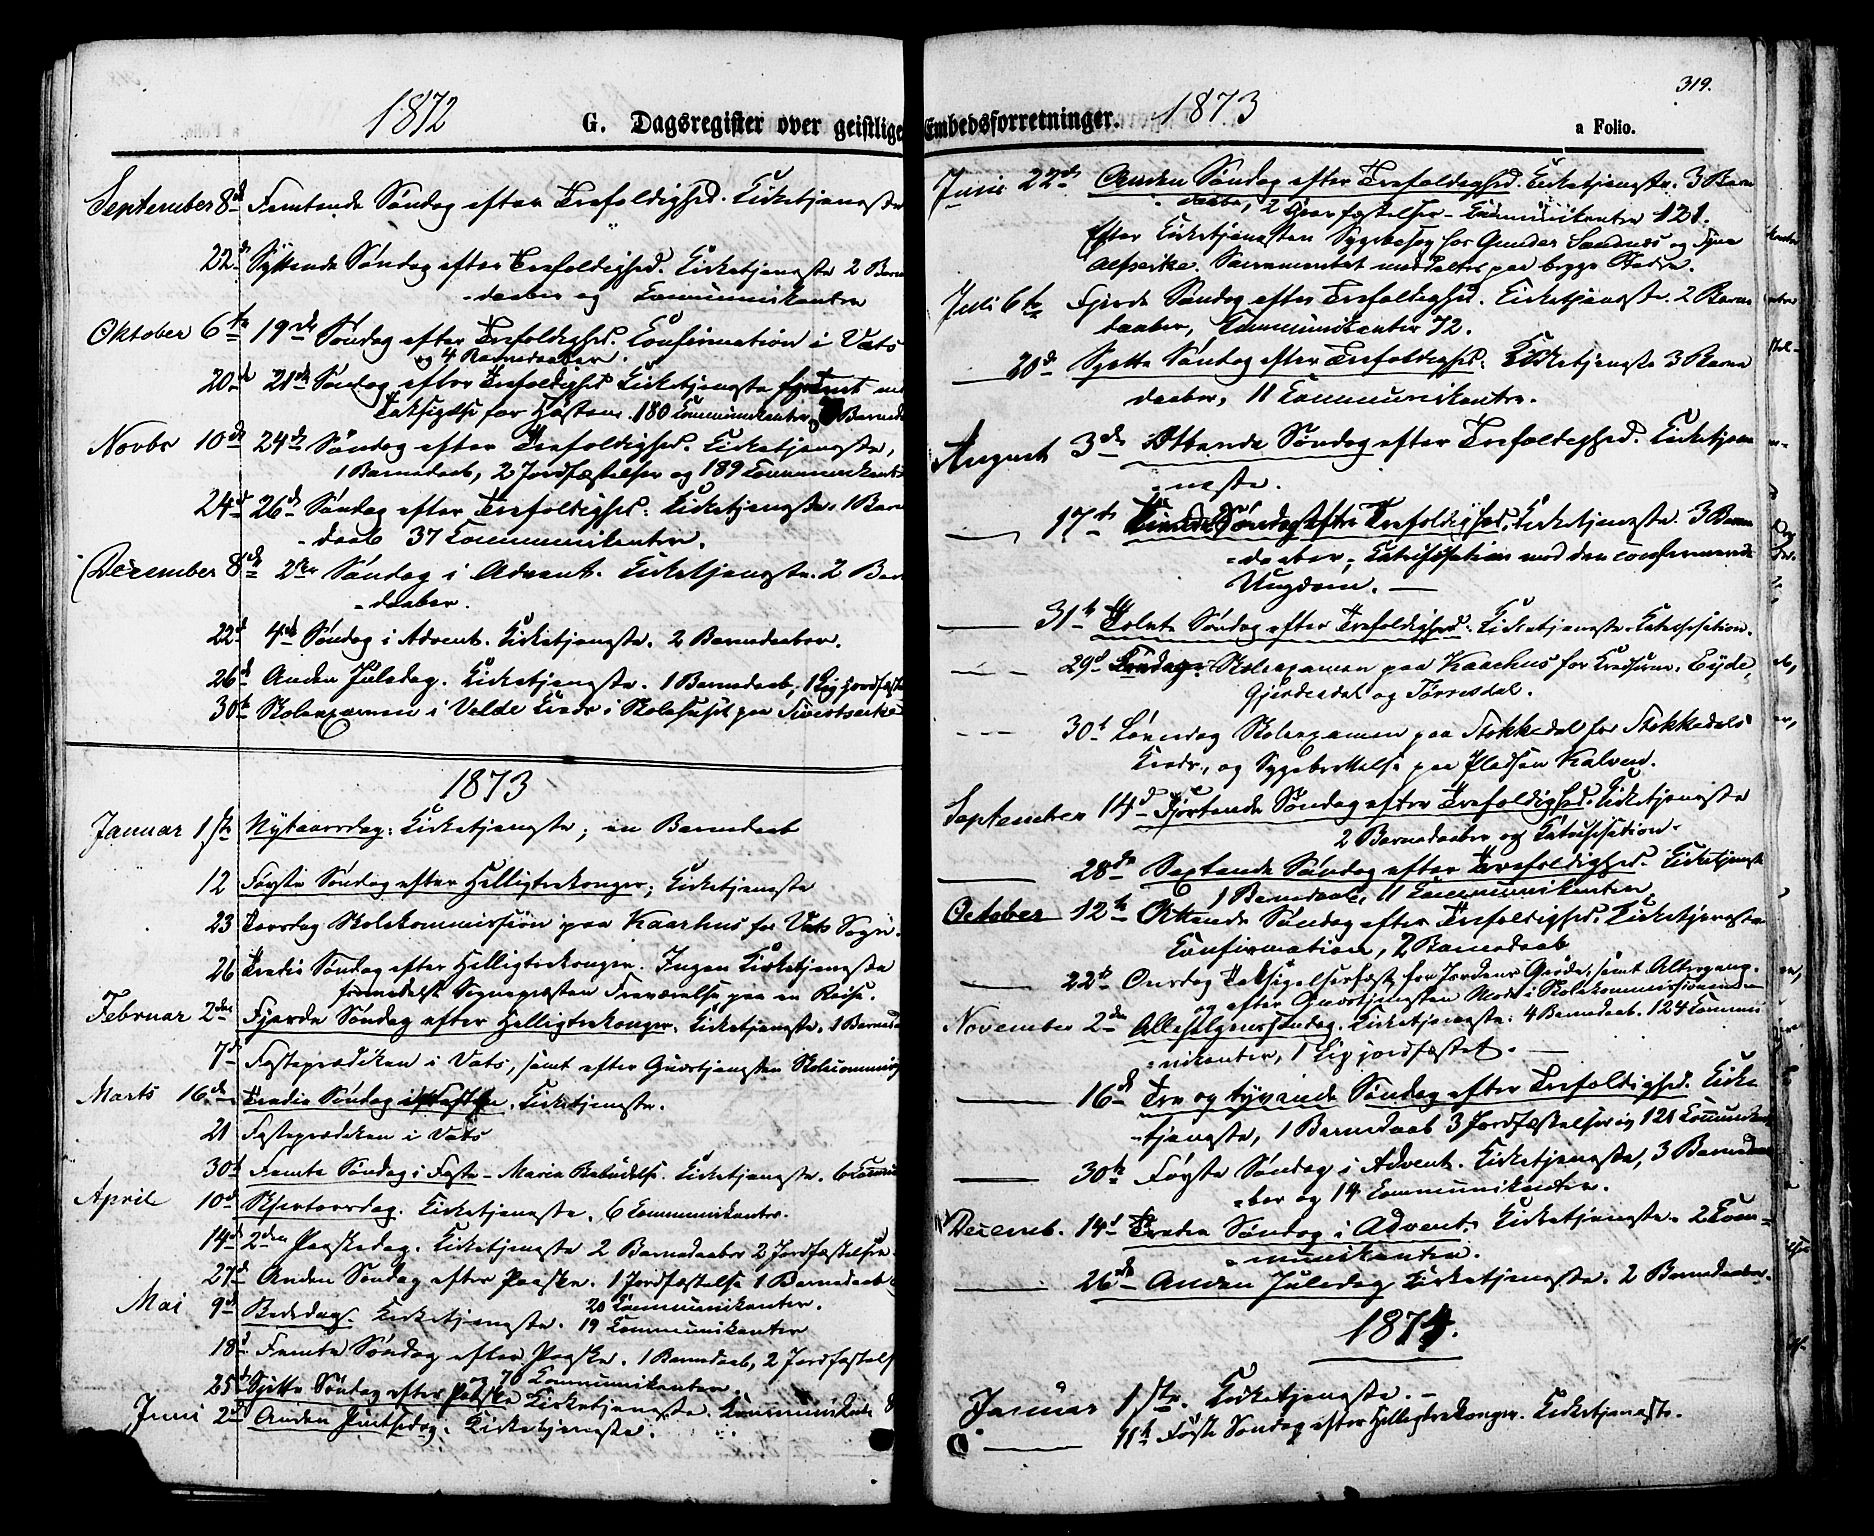 1872
G. Dagsregister over geistlige
September 8de Femtende Søndag efter Trefoldighed. Kirketjeneste
22de Syttende Søndag efter Trefoldighed. Kirketjeneste 2 Barne
daaber og Communikanter
Oktober 6te 19de Søndag efter Trefoldighed. Confirmation i Vats
og 4 Barnedaaber.
20de 21de Søndag efter Trefoldighed Kirketjeneste
Taksigelse for Høsten. 180 Communikanter Barned
Novbr 10de 24de Søndag efter Trefoldighed. Kirketjeneste,
1 Barnedaab, 2 Jordfæstelser og 189 Communikant
24de 26de Søndag efter Trefoldighed. Kirketjeneste. 1 Barne
daab 37 Communikanter.
December 8de 2den Søndag i Advent. Kirketjeneste. 2 Bar
daaber.
22de 4de Søndag i Advent. Kirketjeneste. 2 Barnedaaber.
26de Anden Juledag. Kirketjeneste. 1 Barnedaab, 1 Lig jordfæst
30te Skoleexamen i Velde Kreds i Skolehuset paa
1873
Januar 1ste Nytaarsdag. Kirketjeneste; en Barnedaab
12 Første Søndag efter Helligtrekonger; Kirketjeneste
23 Torsdag Skolekommission paa Kaarhus for Vats Sogn.
26 Tredie Søndag efter Helligtrekonger. Ingen Kirketjeneste
formedelst Sognepræsten Fraværelse paa en Reise.
Februar 2den Fjerde Søndag efter Helligtrekonger. Kirketjeneste. 1 Barneda
7de Fasteprædiken i Vats, samt efter Gudstjenesten Skolecommiss
Marts 16de Tredie Søndag i Faste. Kirketjeneste.
21 Fasteprædiken i Vats
30te Femte Søndag i Faste - Maria Bebudelse. Kirketjeneste. 6 Commu
April 10de Skjertorsdag. Kirketjeneste. 6 Communikanter.
14de 2den Paaskedag. Kirketjeneste 2 Barnedaaber 2 Jordfæstelser
27de Anden Søndag efter Paaske. 1 Jordfæstelse 1 Barnedaab
20 Communikanter.
Mai 9de Bededag. Kirketjeneste. 19 Communikanter
18de Femte Søndag efter Paaske. 1 Barnedaab, 2 Jordfæstels
og 70 Communikanter.
25de Sjette Søndag efter Paaske Kirketjeneste. Kommunikante 8
Juni 2den Anden Pintsedag. Kirketjeneste.
319.
Embedsforretninger.
1873
a Folio.
Juni 22de Anden Søndag efter Trefoldighed. Kirketjeneste. 3 Barne
daaber, 2 Jordfæstelser - Communikanter 121.
Efter Kirketjenesten Sygebesøg hos Gunder Sandnes og
Alfseike. Sacramentet meddeltes paa begge Steder.
Juli 6te Fjerde Søndag efter Trefoldighed. Kirketjeneste. 2 Barne
daaber, Communikanter 72.
20de Sjette Søndag efter Trefoldighed. Kirketjeneste 3 Barne
daaber, 11 Communikanter.
August 3de Ottende Søndag efter Trefoldighed. Kirketje
neste.
17de Tiende Søndag efter Trefoldighed. Kirketjeneste. 3 Barne
daaber, Katechisation med den confirmerede
Ungdom.
31te Tolvte Søndag efter Trefoldighed. Kirketjeneste. Katechisation.
29de Skoleexamen paa Kaarhus for Kredsene Eyde,
Gjerdesdal og Tørresdal.
30te Løverdag Skoleexamen paa Stokkedal for Stokkedals
Kreds, og Sygeberettelse paa Pladsen Kalven.
September 14de Fjortende Søndag efter Trefoldighed. Kirketjeneste
2 Barnedaaber og Katechisation.
28de Sextende Søndag efter Trefoldighed. Kirketjeneste
1 Barnedaab, 11 Communikanter.
October 12te Ottende Søndag efter Trefoldighed. Kirketjeneste
Confirmation, 2 Barnedaab
22de Onsdag Taksigelsesfest for Jordens Grøde, samt Altergang.
og efter Gudstjenesten Møde i Skolekommissionen
November 2den Allehelgenssøndag. Kirketjeneste. 4 Barnedaab. 124 Commu
nikanter, 1 Lig jordfæstet.
16de Tre og tyvende Søndag efter Trefoldighed. Kirke
tjeneste, 1 Barnedaab 3 Jordfæstelser og 121 Communikan
30te Første Søndag i Advent. Kirketjeneste, 3 Barneda
ber og 14 Communikanter.
Decemb. 14de Tredie Søndag i Advent. Kirketjeneste. 2 Com
munikanter.
26de Anden Juledag Kirketjeneste. 2 Barnedaaber.
1874.
Januar 1ste. Kirketjeneste.
11te Første Søndag efter Helligtrekonger. Kirketjeneste.